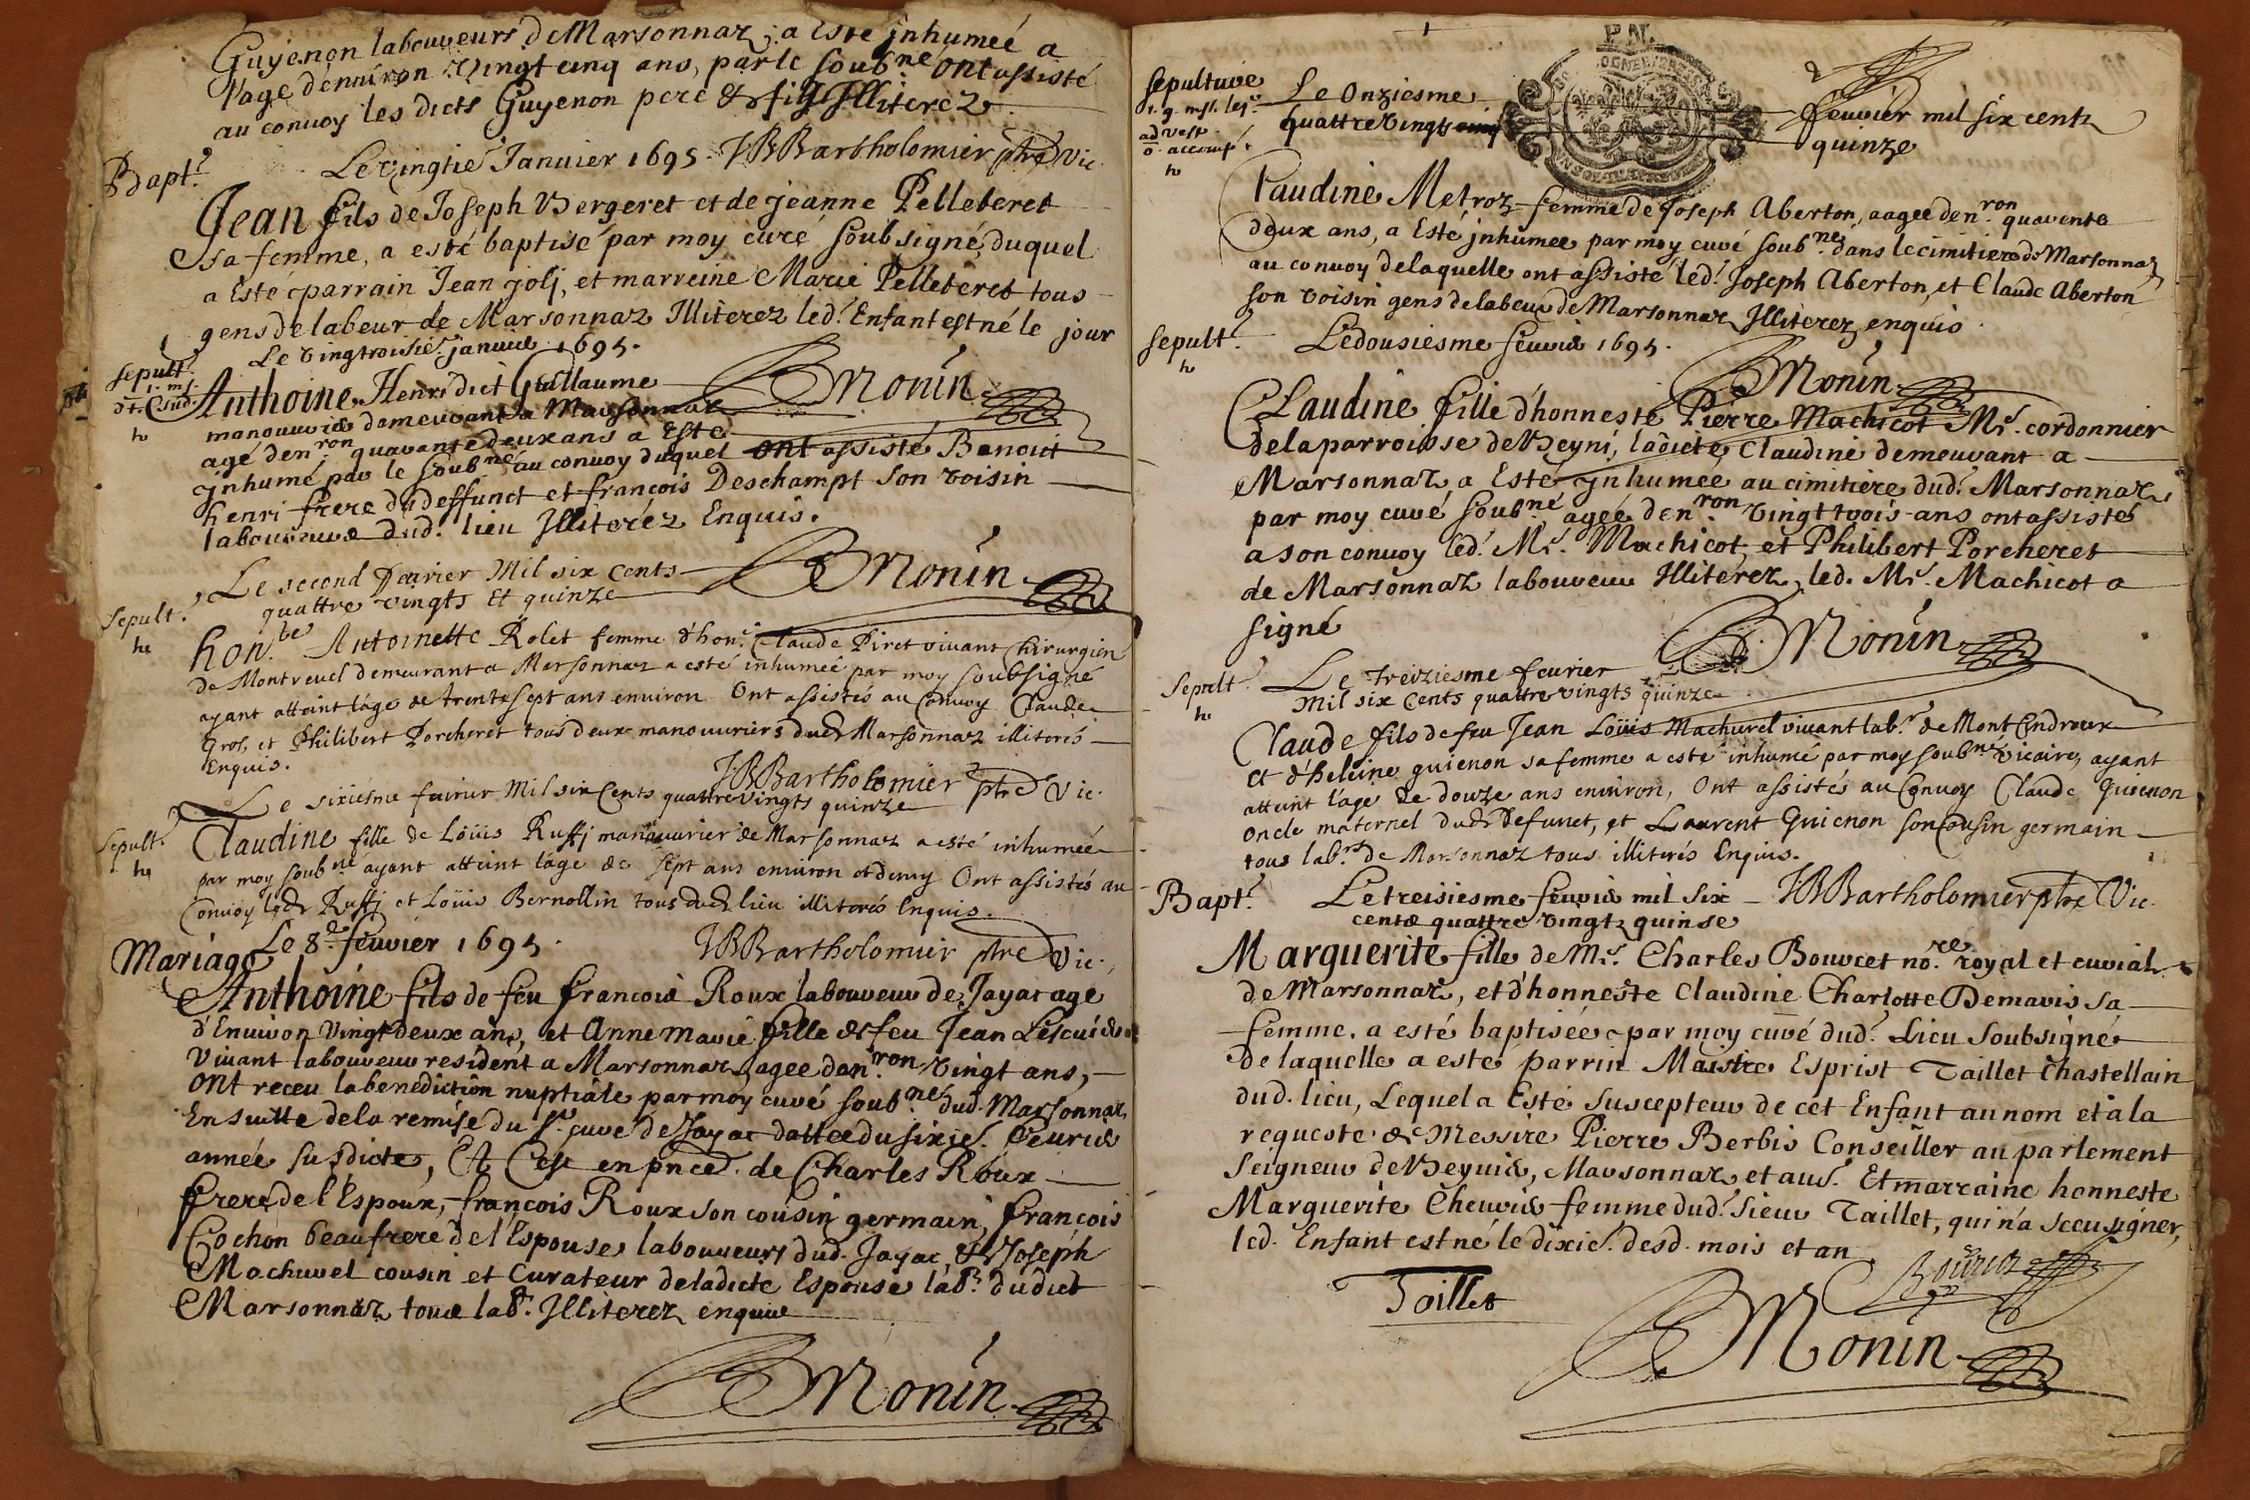 Guyenon laboureurs de Marsonnaz, a Esté jnhumeé a
l'age denuiron vingt cinq ans, par le soub.né ont assisté
au conuoy les dicts Guyenon pere & fils Jlliterez
Bapt.e
Le vingtie.e Januier 1695. JBBartholomier ptre Vic.
Jean fils de Joseph Vergeret et de jeanne Pelleteret
sa femme, a esté baptisé par moy curé soubsigné, duquel
a Esté parrain Jean jolj, et marreine Marie Pelleteret tous
gens de labeur de Marsonnaz Jlliterez led. Enfant est né le jour
Le vingtroisie. januier 1695.
sepult.e
Anthoine Henri dict Guillaume
manouurier demeurant a Marsonnaz
BMonin
agé den.ron quarante deux ans a Esté
jnhumé par le soub.né au conuoy duquel ont assisté Benoict
henri frere du deffunct et françois Deschampt son voisin
laboureurs dud. lieu Jlliteréz Enquis.
BMonin
Le second feurier Mil six Cents
quattre vingts Et quinze
sepult.e
hon.be Antoinette Rolet femme d'hon.e Claude Piret viuant Chirurgien
de Montreuel demeurant a Marsonnaz a esté inhumeé par moy soubsigné
ayant atteint l'age de trente sept ans enuiron Ont assistés au Conuoy Claude
Gros, et Philibert Porcheret tous deux manouuriers dud. Marsonnaz illiterés
Enquis.
JBBartholomier ptre Vic.
Le sixiesme feurier Mil six Cents quattre vingts quinze
sepult.e
Claudine fille de Loüis Ruffj manouurier de Marsonnaz a esté inhumeé
par moy soub.né ayant atteint l'age de sept ans enuiron et demy Ont assistés au
Conuoy led. Ruffj et Loüis Bernollin tous dud. lieu illiterés Enquis.
JBBartholomier ptre Vic.
Mariage
Le 8.e feuvier 1695.
Anthoine fils de feu françois Roux laboureur de Jayac agé
d'Enuiron vingt deux ans, et Anne Marie fille de feu Jean Lescuier
viuant laboureur resident a Marsonnaz agee den.ron vingt ans,
ont receu la benediction nuptiale par moy curé soub.né dud. Marsonnaz
Ensuitte de la remise du s.r curé de Jayac dattee du sixie. feurier
année susdicte, Et Ce en pnce de Charles Roux
frere de l'Espoux, françois Roux son cousin germain, françois
Cochon beaufrere de l'Espouse laboureurs dud. Jayac, & Joseph
Machurel cousin et Curateur de ladicte Espouse lab.r dudict
Marsonnaz tous lab.r Jlliterez enquis
BMonin
P.N.
sepulture
Le Onziesme feuvier mil six centz
quattre vingts quinze
Claudine Metroz femme de Joseph Aberton, aagee den.ron quarente
deux ans, a Esté jnhumee par moy curé soub.né dans le cimitiere de Marsonnaz
au conuoy de laquelle ont assisté led. Joseph Aberton, et Claude Aberton
son voisin gens de labeur de Marsonnaz Jlliterez enquis.
BMonin
sepult.e
Le dousiesme feuvier 1695.
Claudine fille d'honneste Pierre Machicot M.e cordonnier
de la parroisse de Veyni, ladicte Claudine demeurant a
Marsonnaz a Esté jnhumee au cimitiere dud. Marsonnaz
par moy curé soub.né agée den.ron vingt trois ans ont assistés
a son conuoy led. M.e Machicot, et Philibert Porcheret
de Marsonnaz laboureur Jlliterez, led. M.e Machicot a
signé
BMonin
sepult.
Le treiziesme feurier
Mil six Cents quattre vingts quinze
Claude fils de feu Jean Loüis Machurel viuant lab.r de Mont
et d'heleine guienon sa femme a esté inhumé par moy soub.né vicaire, ayant
atteint l'age de douze ans enuiron, Ont assistés au Conuoy Claude Guienon
oncle maternel dud. defunct, et Laurent Guienon son Cousin germain
tous lab.rs de Marsonnaz tous illiterés Enquis.
JBBartholomier ptre Vic.
Bapt.e
Le treisiesme feuvier mil six
cents quattre vingtz quinse
Marguerite fille de M.e Charles Bouvet no.re royal et curial
de Marsonnaz, et d'honneste Claudine Charlotte Demaris sa
femme, a esté baptisée par moy curé dud. Lieu soubsigné
de laquelle a esté parrin Maistre Esprist Taillet Chastellain
dud. lieu, Lequel a Esté suscepteur de cét Enfant au nom et a la
requeste de Messire Pierre Berbis Conseiller au parlement
Seigneur de Marsonnaz et au.s. Et marraine honneste
Marguerite Cheuvier femme dud. Sieur Taillet, qui n'a sceu signer,
led. Enfant est né le dixie. desd. mois et an
Taillet
BMonin